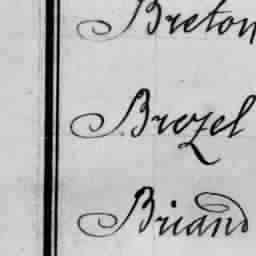 Breton
Brozel
Briand